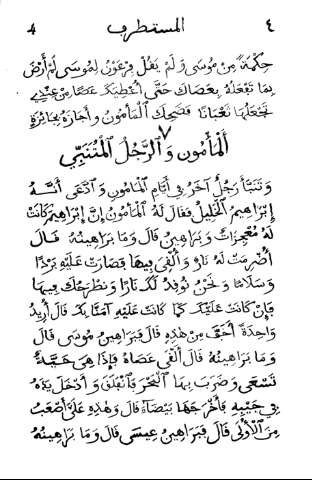 ٤ المستطرف ٨
حِكْمَةً مِنْ مُوسَى وَلَمْ يَقُلْ فِرْعَوْنُ لِمُوسَى لَمْ أَرْضَ
بِمَا تَفْعَلُهُ بِعَصَاكَ حَتَّى أُعْطِيَكَ عَصًا مِنْ عِنْدِي
تَجْعَلُهَا ثُعْبَانًا فَضَحِكَ الْمَأْمُونُ وَأَجَازَهُ بِجَائِزَةٍ
٧
الْمَأْمُون وَالرَّجُلُ الْمُتَنَبِّي
وَتَنَبَّأَ رَجُلٌ آخَرُ فِي أَيَّامِ الْمَأْمُونِ وَادَّعَى أَنَّهُ
إِبْرَاهِيمُ الْخَلِيلُ فَقَالَ لَهُ الْمَأْمُونُ إِنَّ إِبْرَاهِيمَ كَانَتْ
لَهُ مُعْجِزَاتٌ وَبَرَاهِينُ قَالَ وَمَا بَرَاهِينُهُ قَالَ
أُضْرِمَتْ لَهُ نَارٌ وَأُلْقِيَ فِيهَا فَصَارَتْ عَلَيْهِ بَرْدًا
وَسَلَامًا وَنَحْنُ نُوقِدُ لَكَ نَارًا وَنَطْرَحُكَ فِيهَا
فَإِنْ كَانَتْ عَلَيْكَ كَمَا كَانَتْ عَلَيْهِ آمَنَّا بِكَ قَالَ أُرِيدُ
وَاحِدَةً أَخَفَّ مِنْ هٰذِهِ قَالَ فَبَرَاهِينُ مُوسَى قَالَ
وَمَا بَرَاهِينُهُ قَالَ أَلْقَى عَصَاهُ فَإِذَا هِيَ حَيَّةٌ
تَسْعَى وَضَرَبَ بِهَا الْبَحْرَ فَانْفَلَقَ وَأَدْخَلَ يَدَهُ
فِي جَيْبِهِ فَأَخْرَجَهَا بَيْضَاءَ قَالَ وَهٰذِهِ عَلَيَّ أَصْعَبُ
مِنَ الْأُولَى قَالَ فَبَرَاهِينُ عِيسَى قَالَ وَمَا بَرَاهِينُهُ